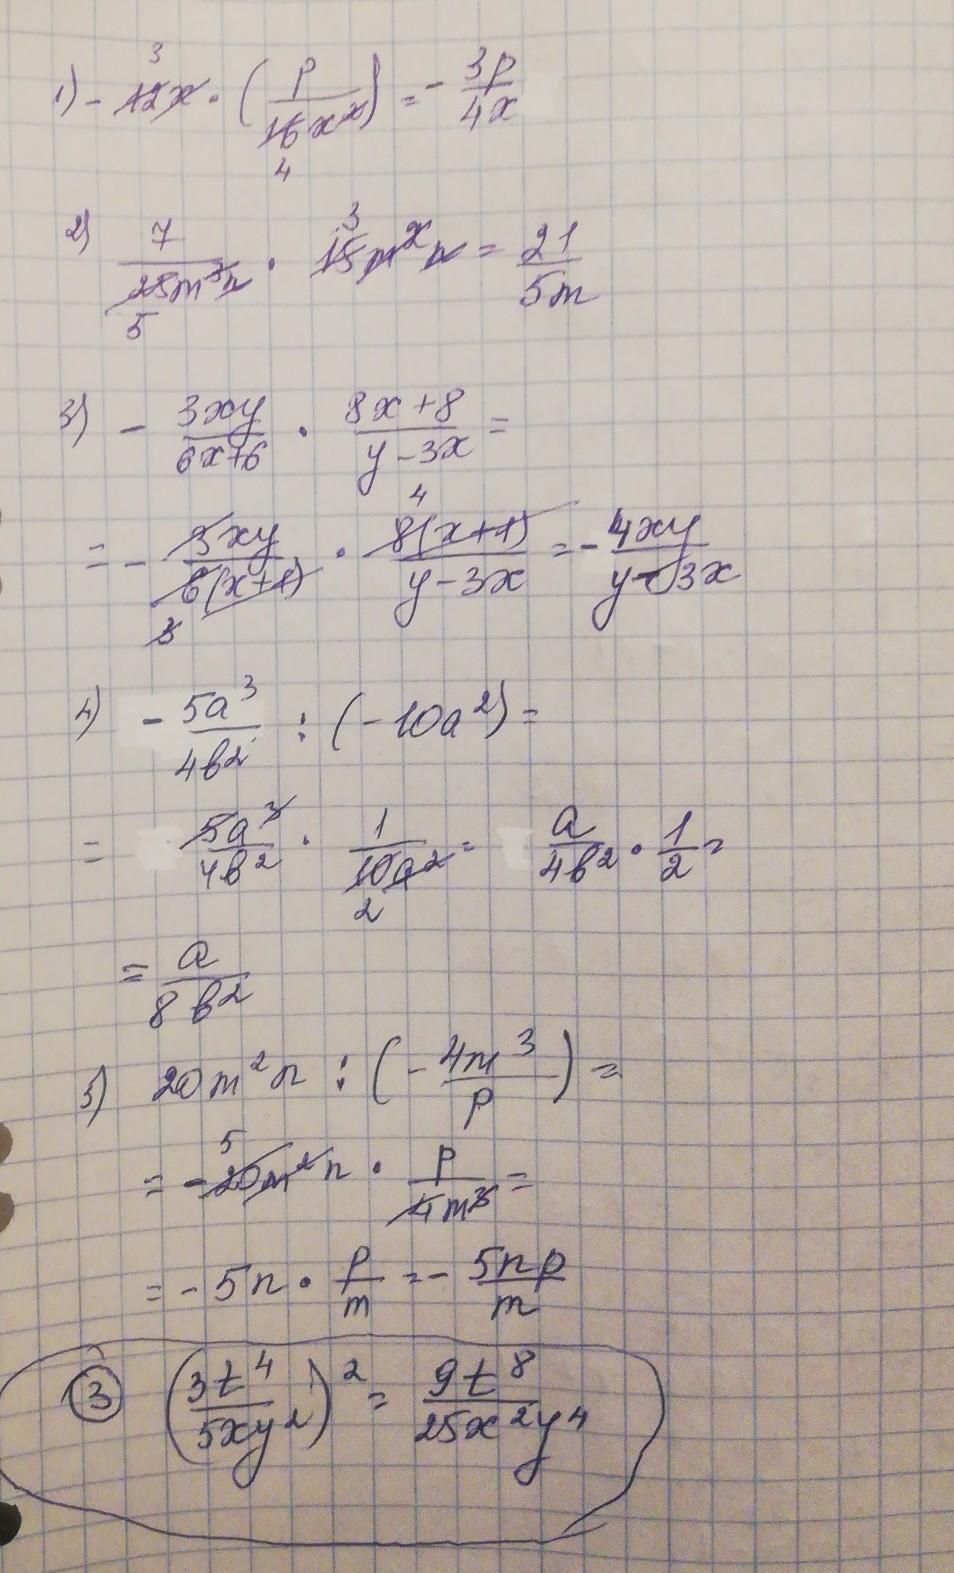 1) - 12x · (p/16x²) = - 3p/4x
3
4
2) 7/25m³n · 15m²n = 21/5m
3
5
3) - 3xy/6x+6 · 8x+8/y-3x =
= - 3xy/6(x+1) · 8(x+1)/y-3x = - 4xy/y-3x
4
3
4) - 5a³/4b² : (-10a²) =
= 5a³/4b² · 1/10a² = a/4b² · 1/2 =
2
= a/8b²
5) 20m²n : (- 4m³/p) =
= - 20m²n · p/4m³ =
5
= - 5n · p/m = - 5np/m
3 (3t⁴/5xy²)² = 9t⁸/25x²y⁴